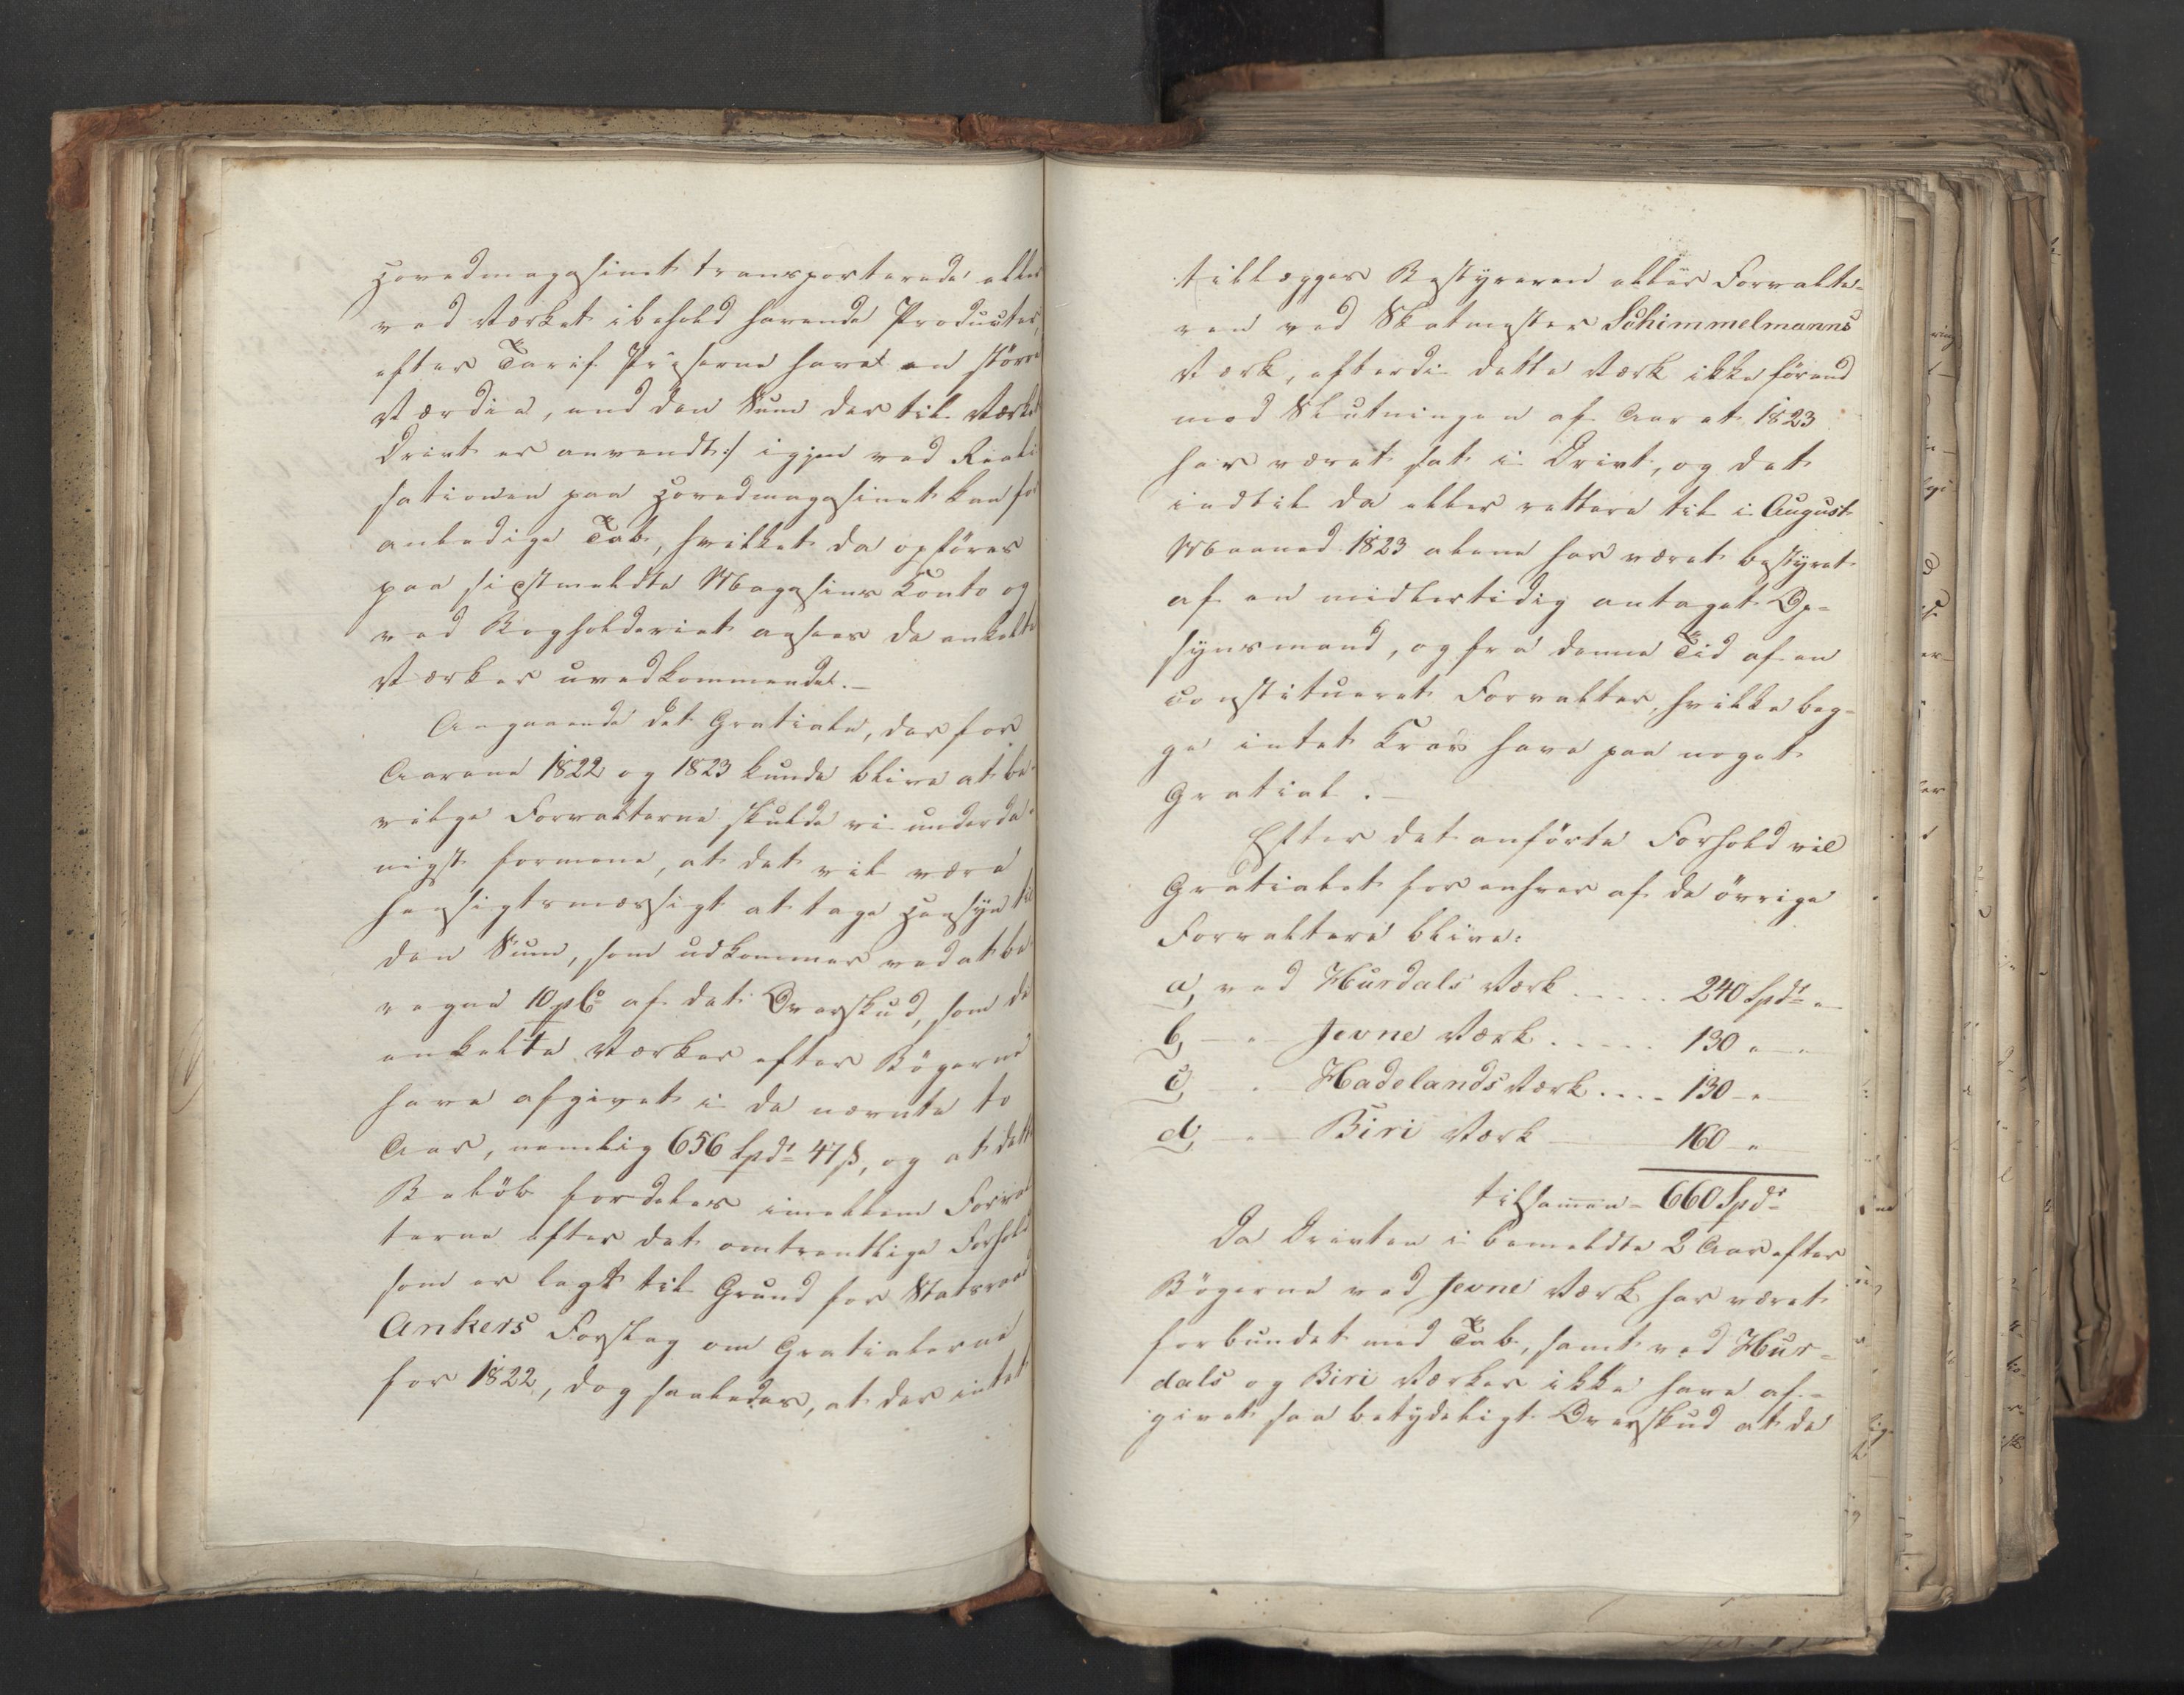 Hovedmagasinet transporterede eller
ved Værket ibehold havende Producter,
efter Tarif Priserne havet en större
Værdie, end den Sum der til Værkets
Drivt er anvendt :/ igjen ved Reali
sationen paa Hovedmagasinet kan for
anledige Tab, hvilket da opföres
paa sidstmeldte Magasins Konto og
ved Bogholderiet ansees de enkelte
Værker uvedkommende. –
Angaaende det Gratiale, der for
Aarene 1822 og 1823 kunde blive at be
vilge Forvalterne skulde vi underda
nigst formene, at det vil være
hensigtsmæssigt at tage Hensyn til
den Sum, som udkommer ved at be
regne 10 pCo af det Overskud, som de
enkelte Værker efter Bögerne
have afgivet i de nævnte to
Aar, nemlig 656 Spdr 47 ß, og at dette
Belöb fordeles imellem Forval
terne efter det omtrentlige Forhold
som er lagt til Grund for Statsraad
Ankers Forslag om Gratialerne
for 1822, dog saaledes, at der intet
tillægges Bestyreren eller Forvalte-
ren ved Skatmester Schimmelmanns
Værk, efterdi dette Værk ikke förend
mod Slutningen af Aaret 1823
har været sat i Drivt, og det
indtil da eller rettere til i August
Maaned 1823 alene har været bestyret
af en midlertidig antaget Op-
synsmand, og fra denne Tid af en
constitueret Forvalter, hvilke beg-
ge intet Krav have paa noget
Gratial. –
Efter det anförte Forhold vil
Gratialet for enhver af de övrige
Forvaltere blive:
a, ved Hurdals Værk ..... 240 Spdr "
b, – " – Jevne Værk ..... 130 " – "
c, – " – Hadelands Værk .... 130 – " –
d, – " – Biri Værk – 160 – "
tilsammen – 660 Spdr
Da Drivten i bemeldte 2 Aar efter
Bögerne ved Jevne Værk har været
forbundet med Tab, samt ved Hur-
dals og Biri Værker ikke have af-
givet saa betydeligt Overskud at de